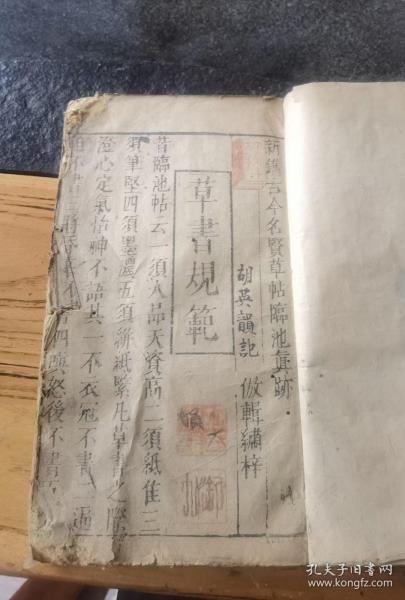 新鐫古今名賢草帖臨池真跡
胡英韻記 倣輯繡梓
草書規範
昔臨池帖云一須人品天資高二須紙佳三
須筆堅四須墨濃五須絲紙緊凡草書之際
澄心定氣怡神不語其一不衣冠不書二逼
不書三將昏夜不書四喜怒後不書
孔夫子旧书网
www.kongfz.com